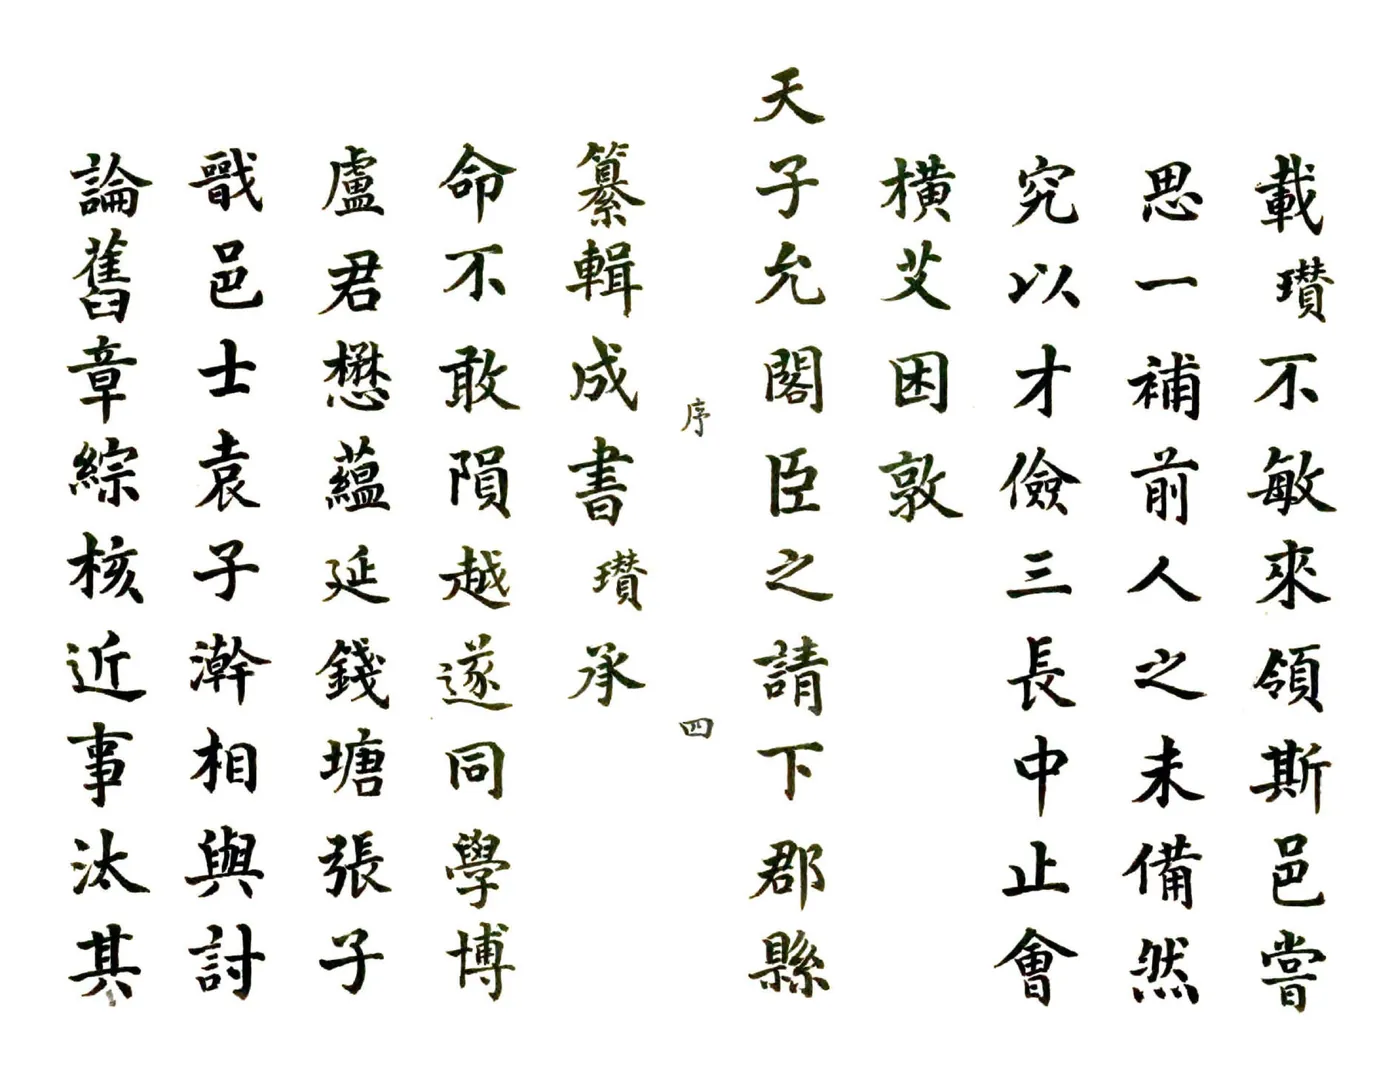 載瓚不敏來領斯邑嘗
思一補前人之未備然
究以才儉三長中止會
橫艾困敦
天子允閣臣之請下郡縣
序 四
纂輯成書瓚承
命不敢隕越遂同學博
盧君懋蘊延錢塘張子
戩邑士袁子澣相與討
論舊章綜核近事汰其